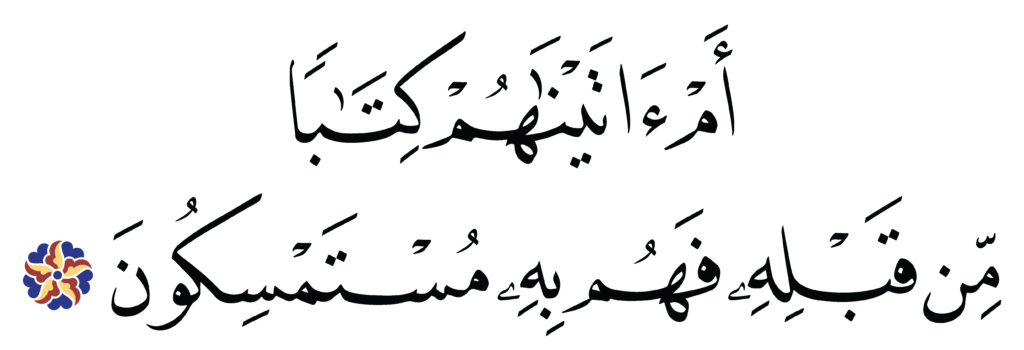 أَمْ ءَاتَيْنَٰهُمْ كِتَٰبًا
مِّن قَبْلِهِۦ فَهُم بِهِۦ مُسْتَمْسِكُونَ